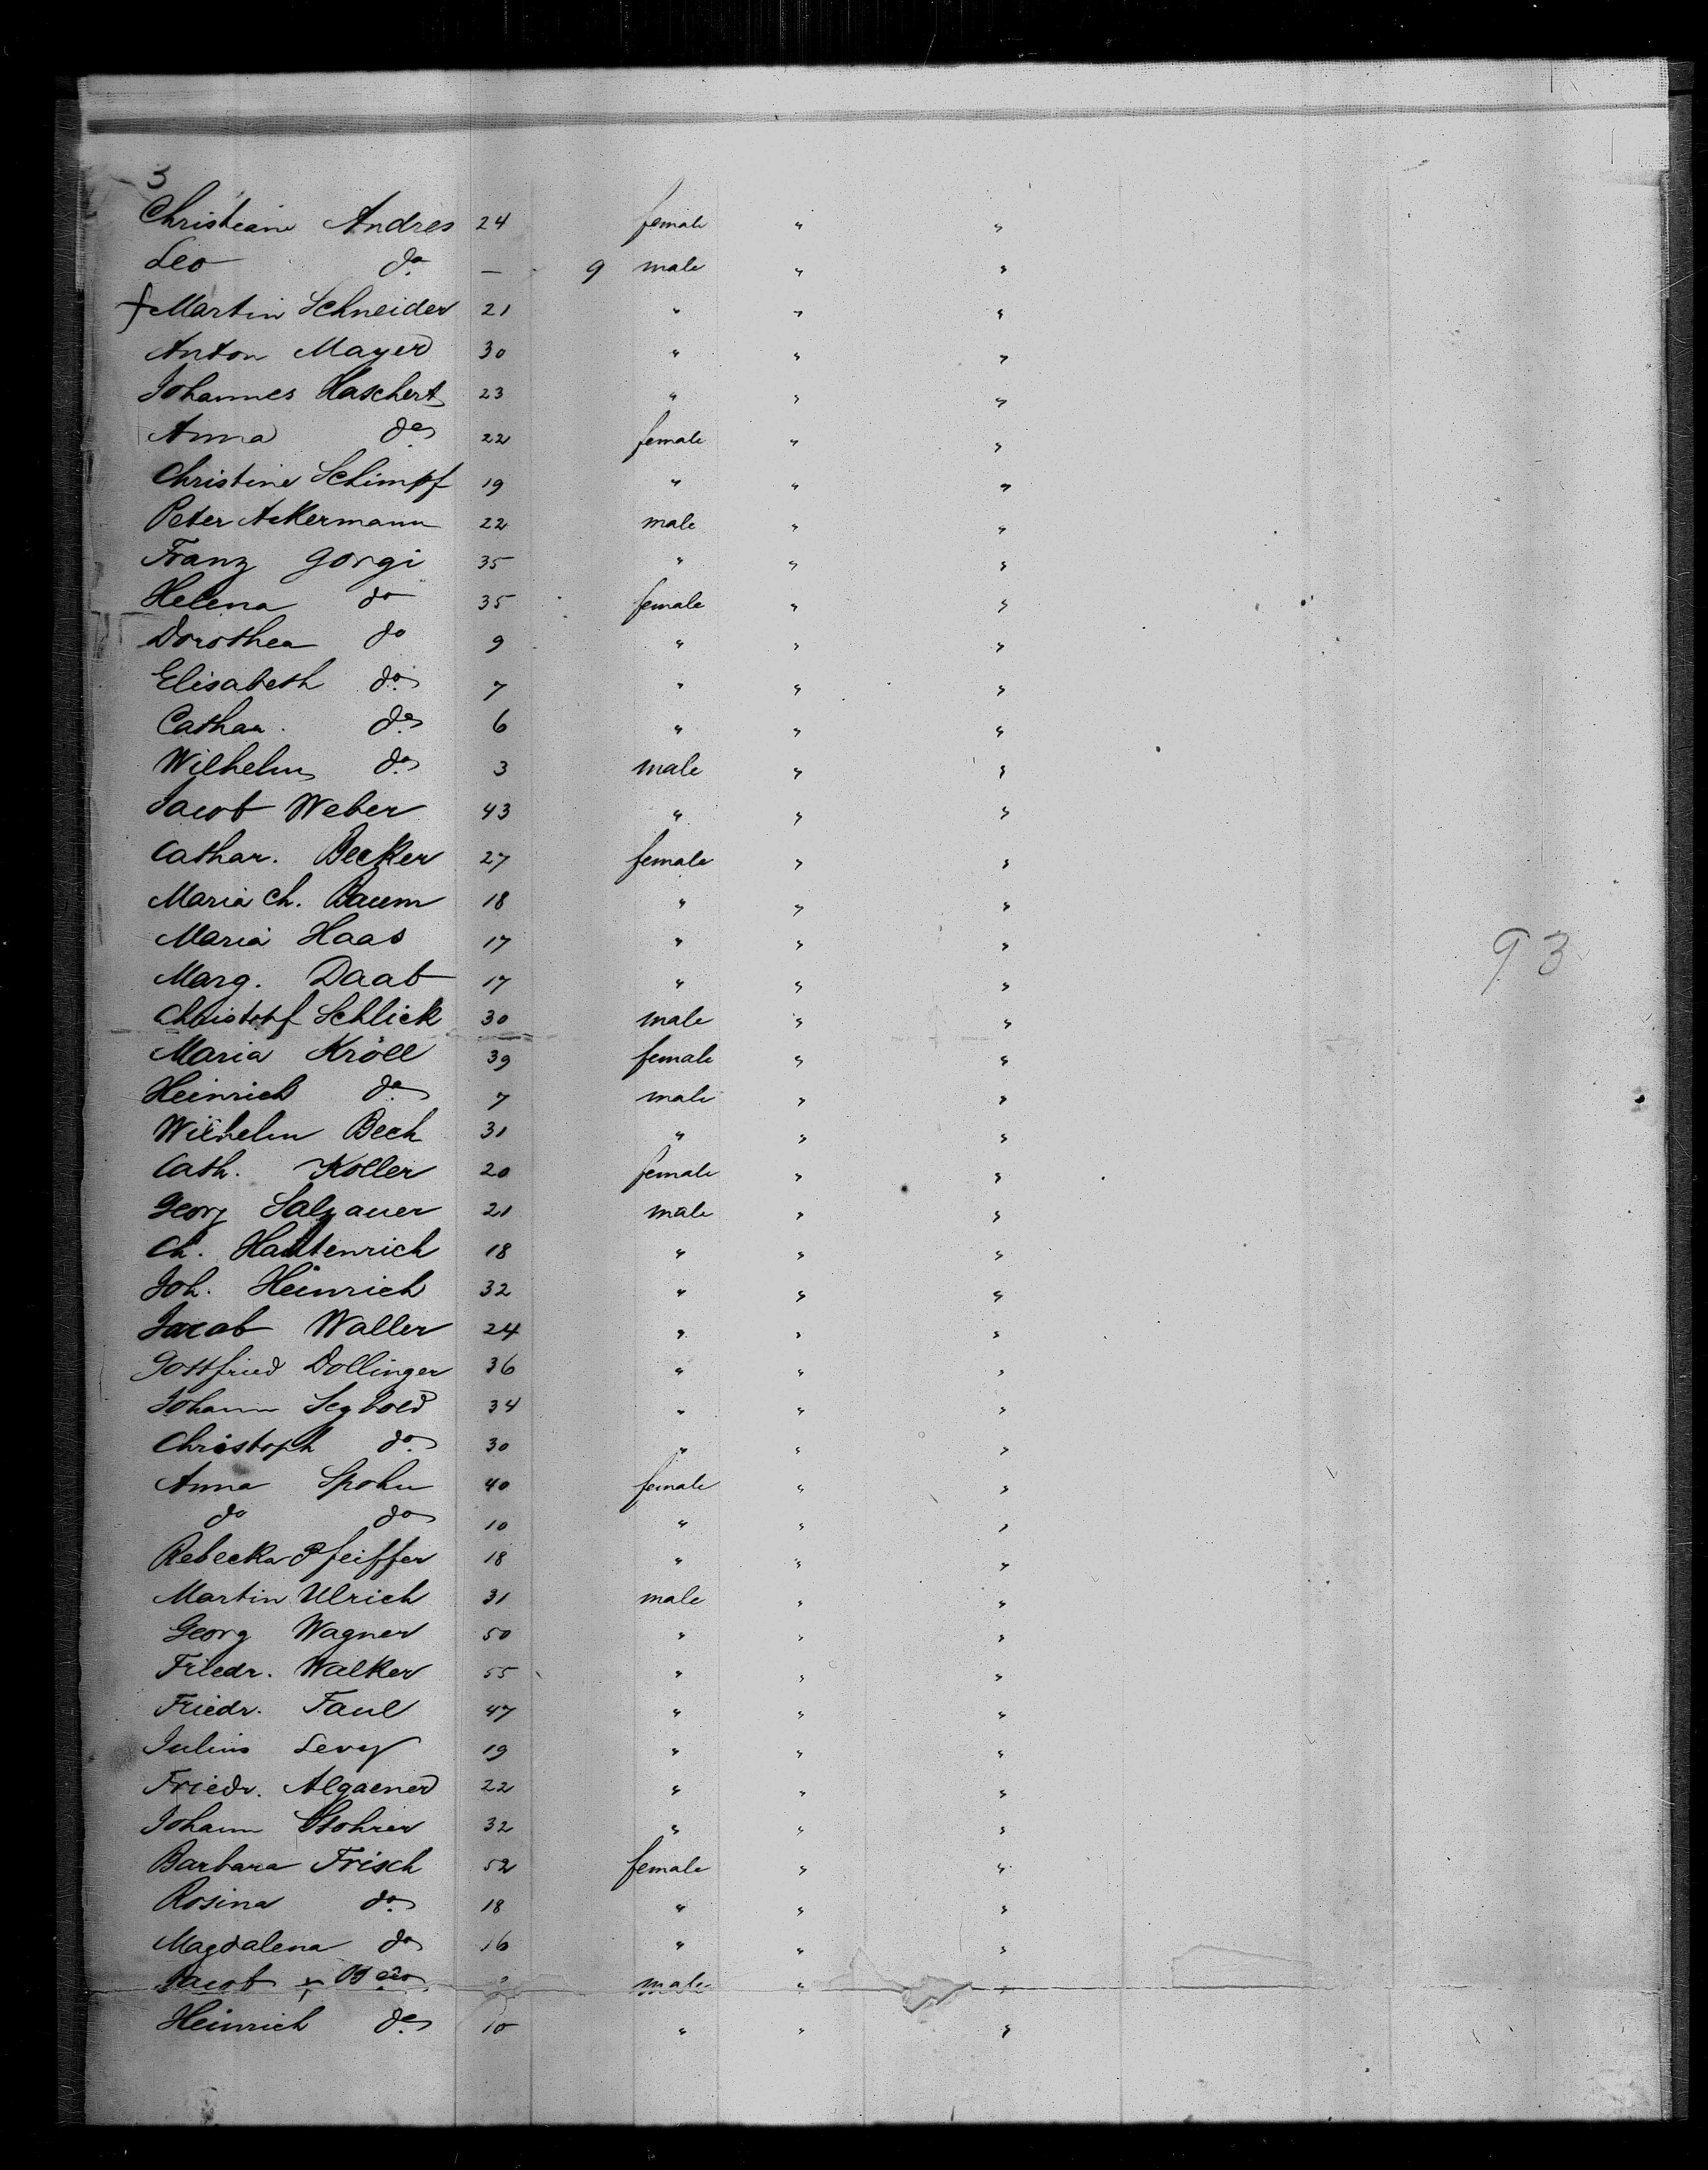 3
Christiane Andres 24 female " "
Leo do — 9 male " "
Martin Schneider 21 " " "
Anton Mayer 30 " " "
Johannes Haschert 23 " " "
Anna do 22 female " "
Christine Schimpf 19 " " "
Peter Ackermann 22 male " "
Franz Gorgi 35 " " "
Helena do 35 female " "
Dorothea do 9 " " "
Elisabeth do 7 " " "
Cathar. do 6 " " "
Wilhelm do 3 male " "
Jacob Weber 43 " " "
Cathar. Becker 27 female " "
Maria Ch. Baum 18 " " "
Maria Haas 17 " " "
Marg. Daab 17 " " "
Christopf Schlick 30 male " "
Maria Kröll 39 female " "
Heinrich do 7 male " "
Wilhelm Bech 31 " " "
Cath. Koller 20 female " "
Georg Salzauer 21 male " "
Ch. Hautenrich 18 " " "
Joh. Heinrich 32 " " "
Jacob Waller 24 " " "
Gottfried Dollinger 36 " " "
Johann Seybold 34 " " "
Christoph do 30 " " "
Anna Spohn 40 female " "
do do 10 " " "
Rebecka Pfeiffer 18 " " "
Martin Ulrich 31 male " "
Georg Wagner 50 " " "
Friedr. Walker 55 " " "
Friedr. Faul 47 " " "
Julius Levy 19 " " "
Friedr. Algaener 22 " " "
Johann Stohrer 32 " " "
Barbara Frisch 52 female " "
Rosina do 18 " " "
Magdalena do 16 " " "
Jacob male " "
Heinrich do 10 " " "
93